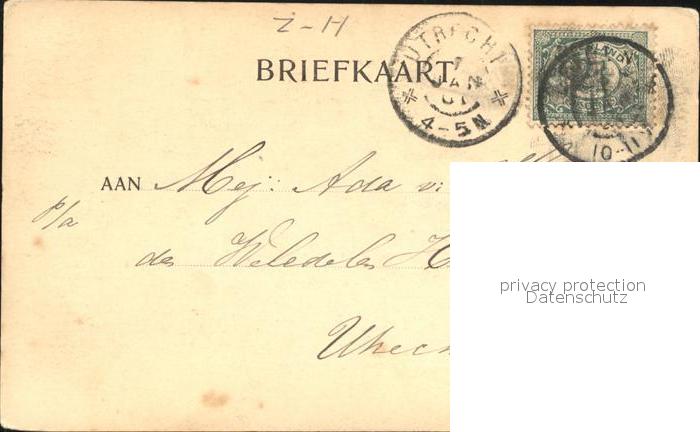 Z-H
BRIEFKAART
UTRECHT
1
JAN
01
4-5N
10-11
AAN Mej: Ada v:
p/a
den Weledelen H
Utrech
privacy protection
Datenschutz